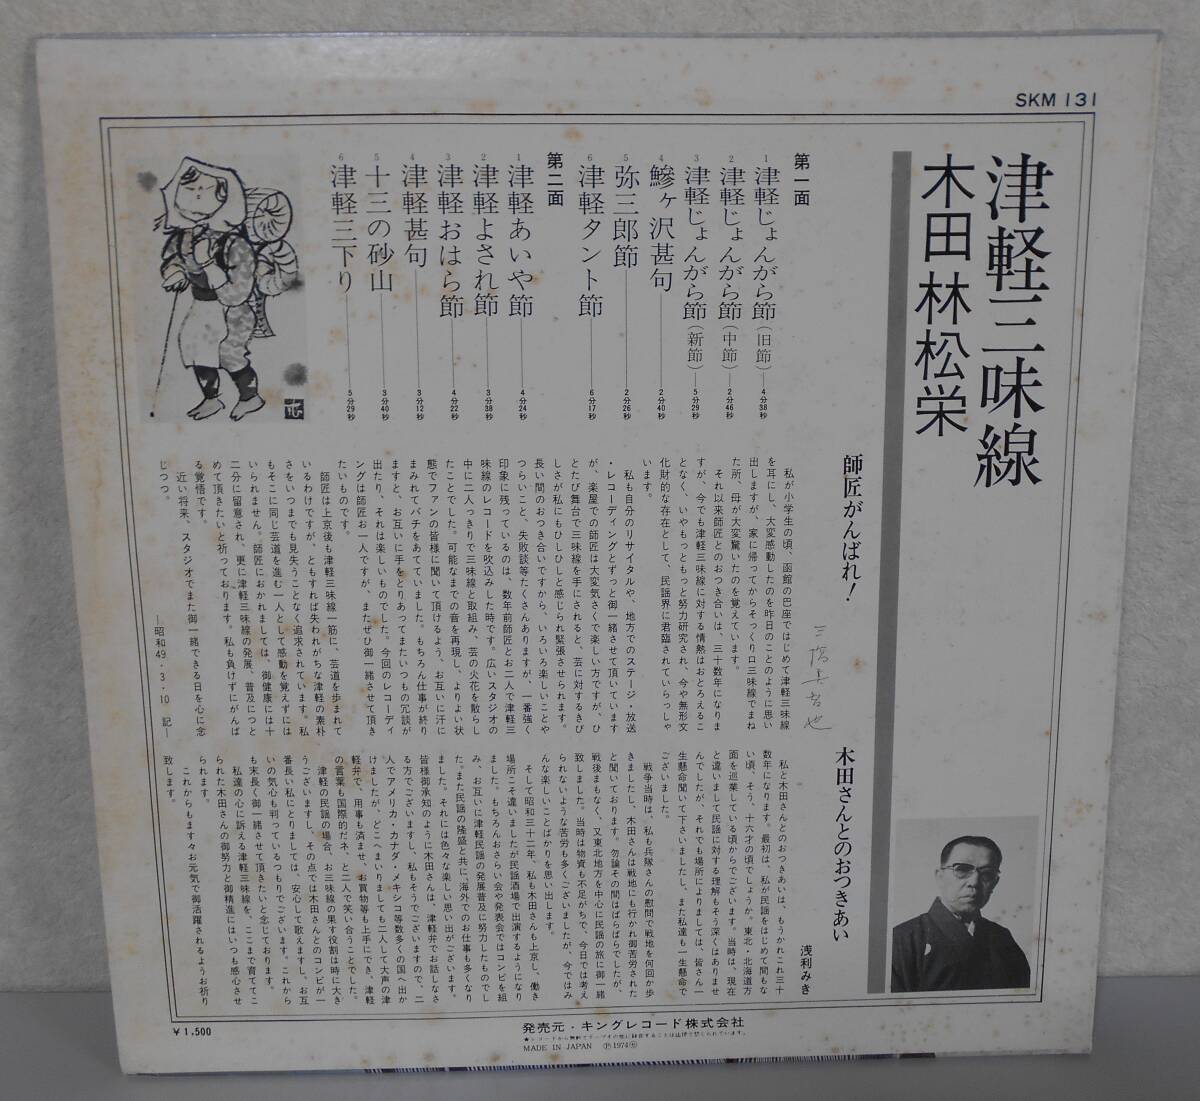 SKM 131
津軽三味線
木田 林松栄
第一面
1 津軽じょんがら節(旧節) 4分38秒
2 津軽じょんがら節(中節) 2分46秒
3 津軽じょんがら節(新節) 5分29秒
4 鰺ヶ沢甚句 2分40秒
5 弥三郎節 2分26秒
6 津軽タント節 6分17秒
第二面
1 津軽あいや節 4分24秒
2 津軽よされ節 3分38秒
3 津軽おはら節 4分22秒
4 津軽甚句 3分12秒
5 十三の砂山 3分40秒
6 津軽三下り 5分29秒
師匠がんばれ!
三橋美智也
私が小学生の頃、函館の巴座ではじめて津軽三味線
を耳にし、大変感動したのを昨日のことのように思い
出しますが、家に帰ってからそっくり口三味線でまね
た所、母が大変驚いたのを覚えています。
それ以来師匠とのおつき合いは、三十数年になりま
すが、今でも津軽三味線に対する情熱はおとろえるこ
となく、いやもっともっと努力研究され、今や無形文
化財的な存在として、民謡界に君臨されていらっしゃ
います。
私も自分のリサイタルや、地方でのステージ・放送
・レコーディングとずっと御一緒させて頂いています
が、楽屋での師匠は大変気さくで楽しい方ですが、ひ
とたび舞台で三味線を手にされると、芸に対するきび
しさが私にもひしひしと感じられ緊張させられます。
長い間のおつき合いですから、いろいろ楽しいことや
つらいこと、失敗談等たくさんありますが、一番強く
印象に残っているのは、数年前師匠とお二人で津軽三
味線のレコードを吹込みした時です。広いスタジオの
中に二人っきりで三味線と取組み、芸の火花を散らし
たことでした。可能なまでの音を再現し、よりよい状
態でファンの皆様に聞いて頂けるよう、お互いに汗に
まみれてバチをあてていました。もちろん仕事が終り
ますと、お互いに手をとりあってまたいつもの冗談が
出たり、それは楽しいものでした。今回のレコーディ
ングは師匠お一人ですが、またぜひ御一緒させて頂き
たいものです。
師匠は上京後も津軽三味線一筋に、芸道を歩まれて
いるわけですが、ともすれば失われがちな津軽の素朴
さをいつまでも見失うことなく追求されています。私
もそこに同じ芸道を進む一人として感動を覚えずには
いられません。師匠におかれましては、御健康には十
二分に留意され、更に津軽三味線の発展、普及につと
めて頂きたいと祈っております。私も負けずにがんば
る覚悟です。
近い将来、スタジオでまた御一緒できる日を心に念
じつつ。
―昭和49・3・10 記―
木田さんとのおつきあい
浅利みき
私と木田さんとのおつきあいは、もうかれこれ三十
数年になります。最初は、私が民謡をはじめて間もな
い頃、そう、十六才の頃でしょうか。東北・北海道方
面を巡業している頃からでございます。当時は、現在
と違いまして民謡に対する理解もそう深くはありませ
んでしたが、それでも場所によりましては、皆さん一
生懸命聞いて下さいましたし、また私達も一生懸命で
ございました。
戦争当時は、私も兵隊さんの慰問で戦地を何回か歩
きましたし、木田さんは戦地にも行かれ御苦労された
と聞いております。勿論その間はばらばらでしたが、
戦後まもなく、又東北地方を中心に民謡の旅に御一緒
致しました。当時は物資も不足がちで、今日では考え
られないような苦労も多くございましたが、今ではみ
んな楽しいことばかりを思い出します。
そして昭和三十二年、私も木田さんも上京し、働き
場所こそ違いましたが民謡酒場で出演するようになり
ました。もちろんおさらい会や発表会ではコンビを組
み、お互いに津軽民謡の発展普及に努力したものでし
た。また民謡の隆盛と共に、海外でのお仕事も多くなり
ました。それには色々な楽しい思い出がございます。
皆様御承知のように木田さんは、津軽弁でお話しなさ
る方でございますし、私もそうでございますので、二
人でアメリカ・カナダ・メキシコ等数多くの国へ出か
けましたが、どこへまいりましても二人して大声の津
軽弁で、用事も済ませ、お買物等も上手にでき、津軽
の言葉も国際的だネ、と二人で笑い合うことでした。
津軽の民謡の場合、お三味線の果す役割は時に大き
うございますし、その点では木田さんとのコンビが一
番長い私にとりましては、安心して歌えますし、お互
いの気心も判っているつもりでございます。これから
も末長く御一緒させて頂きたいと念じております。
私達の心に訴える津軽三味線を、ここまで育ててこ
られた木田さんの御努力と御精進にはいつも感心させ
られます。
これからもます々お元気で御活躍されるようお祈り
致します。
¥1,500
発売元・キングレコード株式会社
★レコードから無断でテープその他に録音することは法律で禁じられています。
MADE IN JAPAN Ⓟ 1974